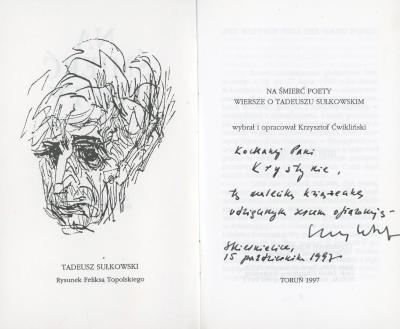 TADEUSZ SUŁKOWSKI
Rysunek Feliksa Topolskiego
NA ŚMIERĆ POETY
WIERSZE O TADEUSZU SUŁKOWSKIM
wybrał i opracował Krzysztof Ćwikliński
Kochanej Pani
Krystynie,
tę maleńką książeczkę
wdzięcznym sercem ofiarowuję -
Skierniewice,
15 października 1997
TORUŃ 1997